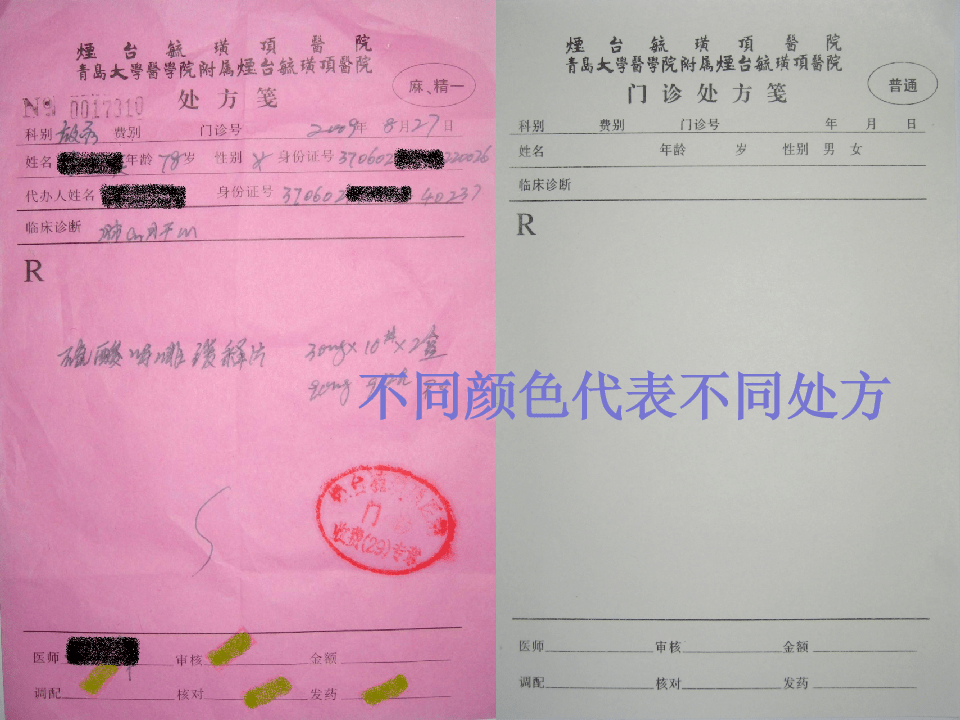 煙台毓璜頂醫院
青島大學醫學院附属煙台毓璜頂醫院
麻、精一
处方笺
No 0017310
科别 费别 门诊号 2009年 8月27日
姓名 年龄 78岁 性别 女 身份证号 370602 220026
代办人姓名 身份证号 370602 40237
临床诊断
R
硫酸吗啡缓释片 30mg×10片×2盒
门
收费(29)专
医师 审核 金额
调配 核对 发药
煙台毓璜頂醫院
青島大學醫學院附属煙台毓璜頂醫院
普通
门诊处方笺
科别 费别 门诊号 年 月 日
姓名 年龄 岁 性别 男 女
临床诊断
R
医师 审核 金额
调配 核对 发药
不同颜色代表不同处方